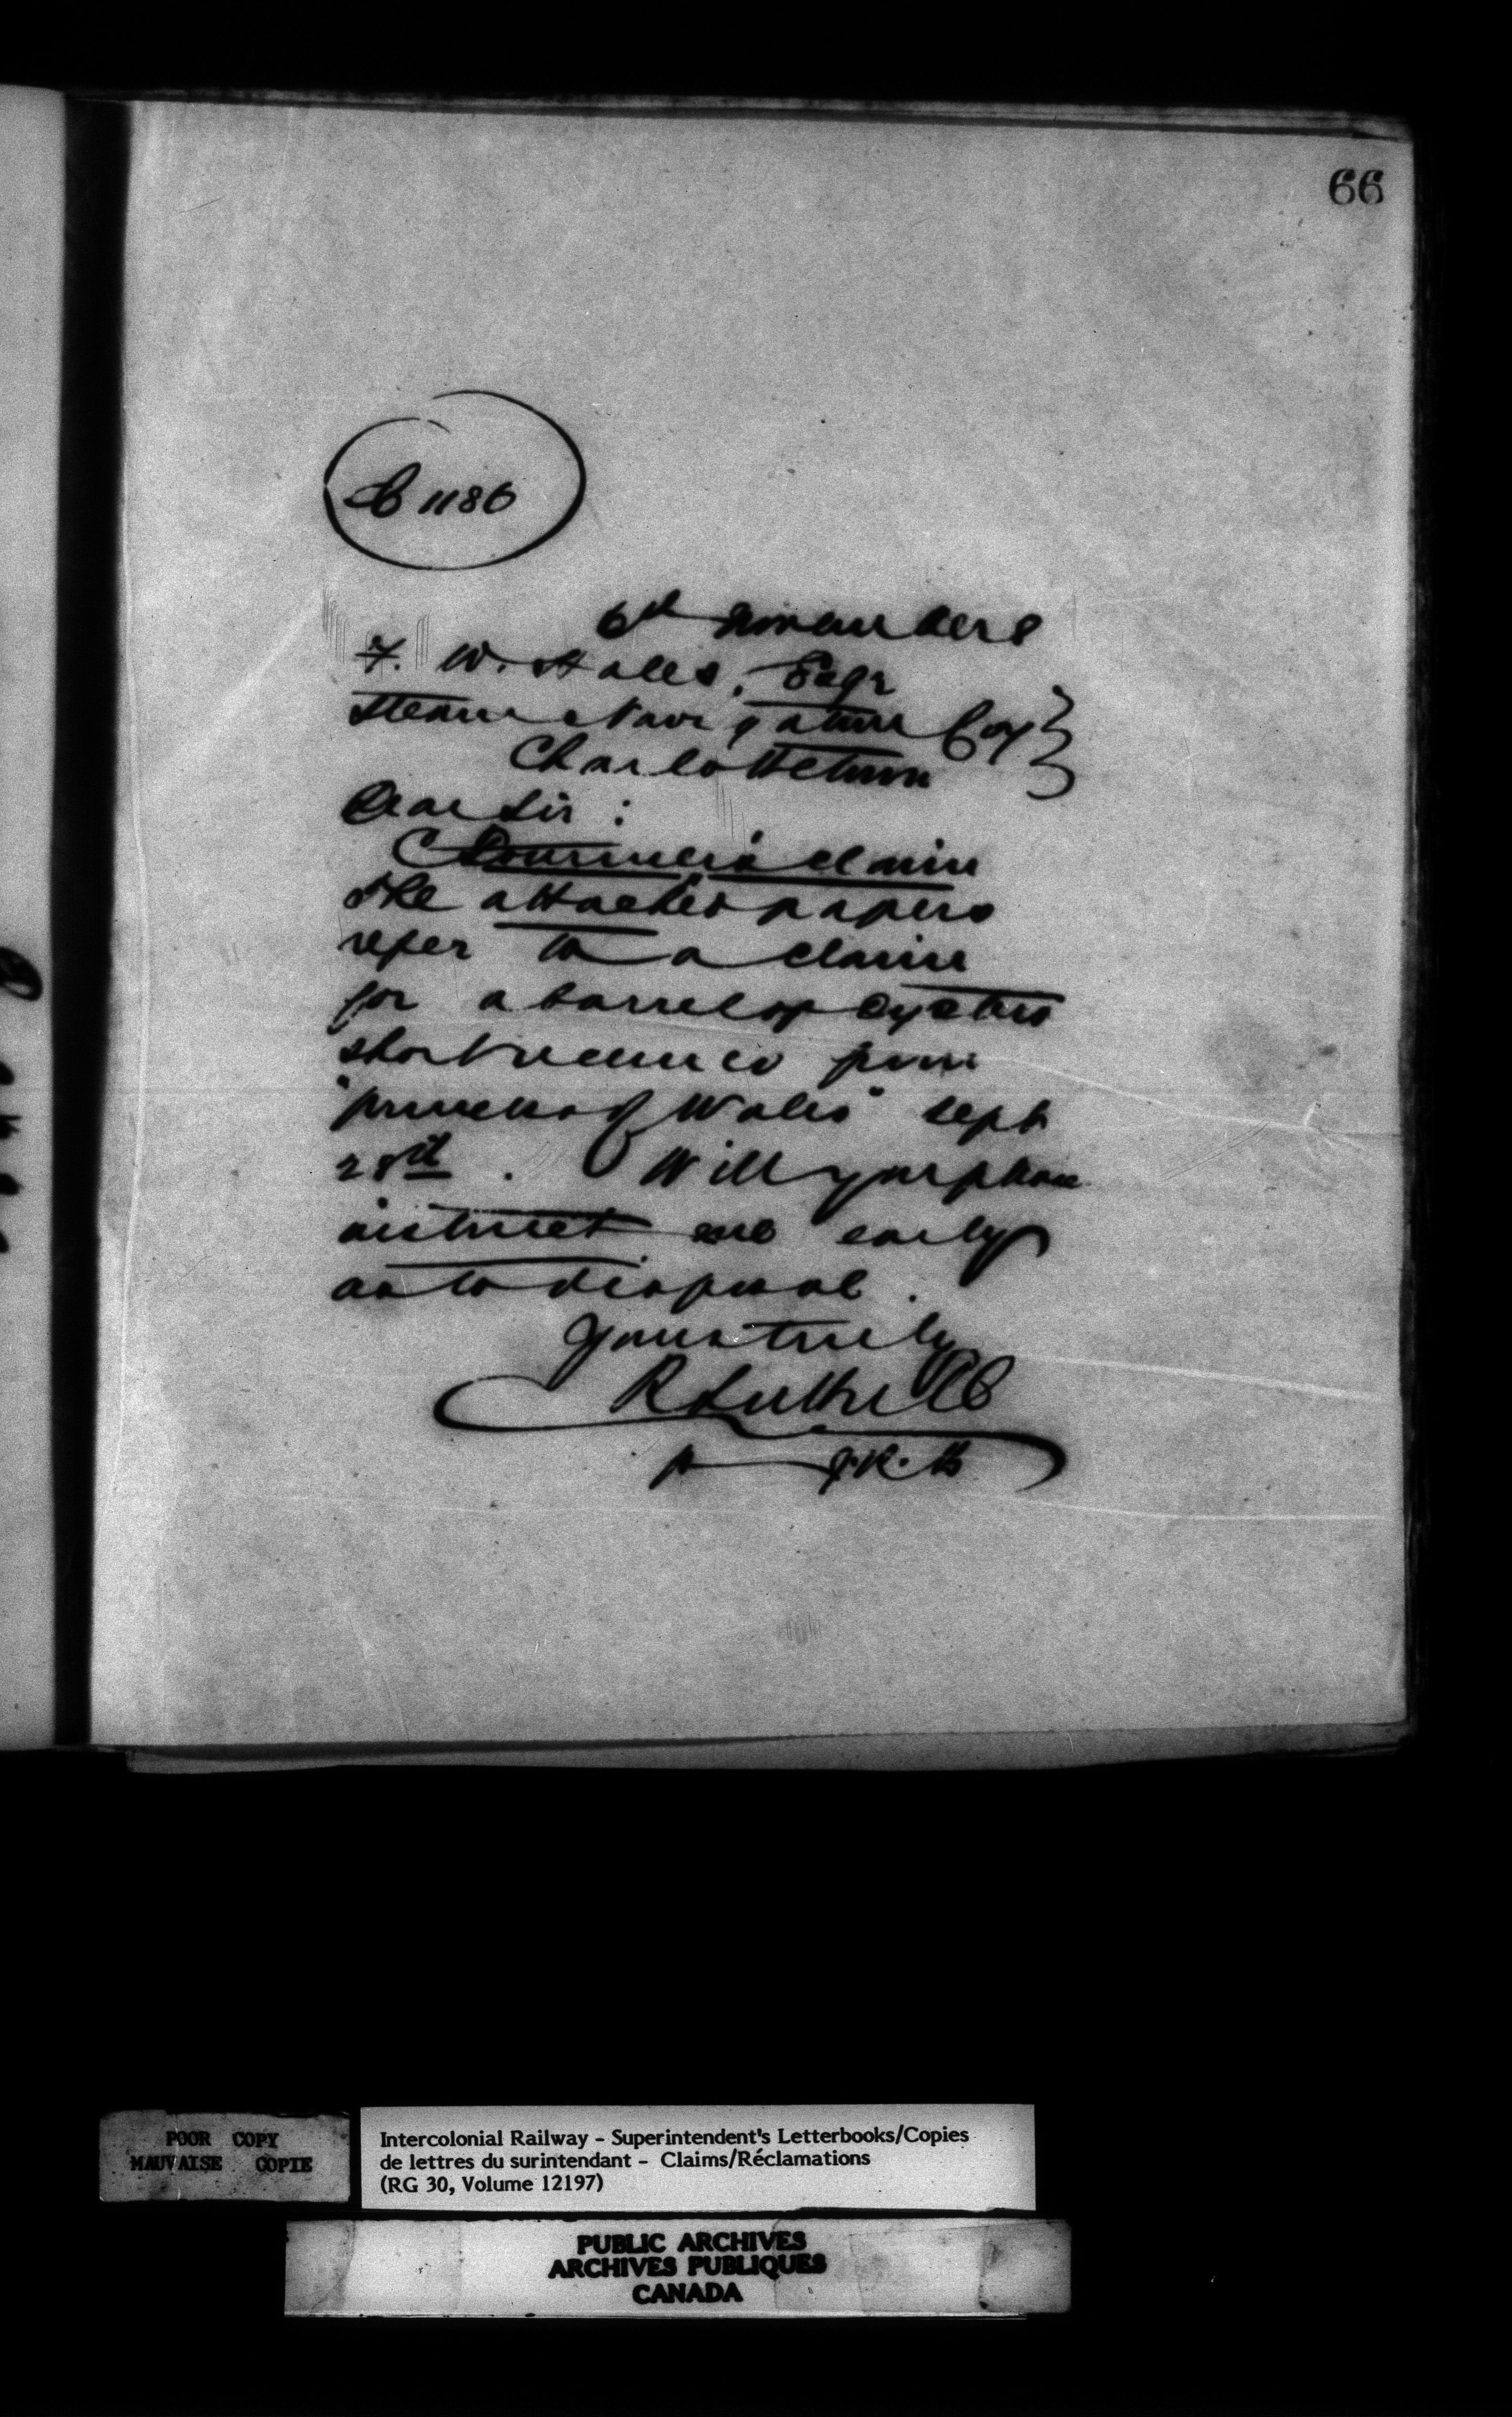 66
C 1186
6th November 8
F. W. Hales, Esqr
Steam Navigation Coy
Charlottetown
Dear Sir:
claim
The attached papers
refer to a claim
for a barrel of oysters
short received from
"Princess of Wales" Sept
28th. Will you please
instruct me early
as to disposal.
Yours truly
R Luttrell
J.R.B
POOR COPY
MAUVAISE COPIE
Intercolonial Railway - Superintendent's Letterbooks/Copies
de lettres du surintendant - Claims/Réclamations
(RG 30, Volume 12197)
PUBLIC ARCHIVES
ARCHIVES PUBLIQUES
CANADA